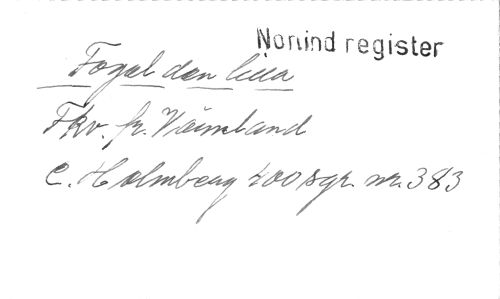 Norrind register
Fogal den lilla
Fkv. fr. Värmland
C. Holmberg 400 sgr. nr. 383